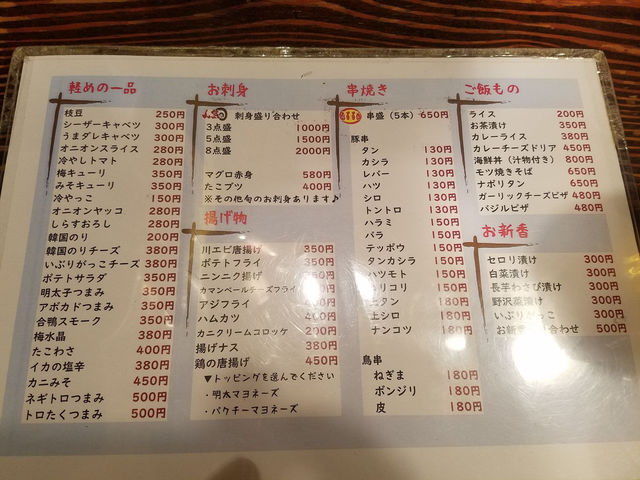 軽めの一品
枝豆 250円
シーザーキャベツ 300円
うまダレキャベツ 300円
オニオンスライス 280円
冷やしトマト 280円
梅キューリ 350円
みそキューリ 350円
冷やっこ 150円
オニオンヤッコ 280円
しらすおろし 280円
韓国のり 200円
韓国のりチーズ 380円
いぶりがっこチーズ 380円
ポテトサラダ 350円
明太子つまみ 350円
アボカドつまみ 350円
合鴨スモーク 350円
梅水晶 380円
たこわさ 400円
イカの塩辛 380円
カニみそ 450円
ネギトロつまみ 500円
トロたくつまみ 500円
お刺身
刺身盛り合わせ
3点盛 1000円
5点盛 1500円
8点盛 2000円
マグロ赤身 580円
たこブツ 400円
※その他旬のお刺身あります♪
揚げ物
川エビ唐揚げ 350円
ポテトフライ 350円
ニンニク揚げ 50円
カマンベールチーズフライ
アジフライ 400円
ハムカツ 400円
カニクリームコロッケ 200円
揚げナス 380円
鶏の唐揚げ 450円
▼トッピングを選んでください
・明太マヨネーズ
・パクチーマヨネーズ
串焼き
串盛(5本) 650円
豚串
タン 130円
カシラ 130円
レバー 130円
ハツ 130円
シロ 130円
トントロ 130円
ハラミ 150円
バラ 150円
テッポウ 150円
タンカシラ 150円
ハツモト 150円
コリコリ 150円
上タン 180円
上シロ 180円
ナンコツ 180円
鳥串
ねぎま 180円
ボンジリ 180円
皮 180円
ご飯もの
ライス 200円
お茶漬け 350円
カレーライス 380円
カレーチーズドリア 450円
海鮮丼(汁物付き) 800円
モツ焼きそば 650円
ナポリタン 650円
ガーリックチーズピザ 480円
バジルピザ 480円
お新香
セロリ漬け 300円
白菜漬け 300円
長芋わさび漬け 300円
野沢菜漬け 300円
いぶりがっこ 300円
お新香 合わせ 500円